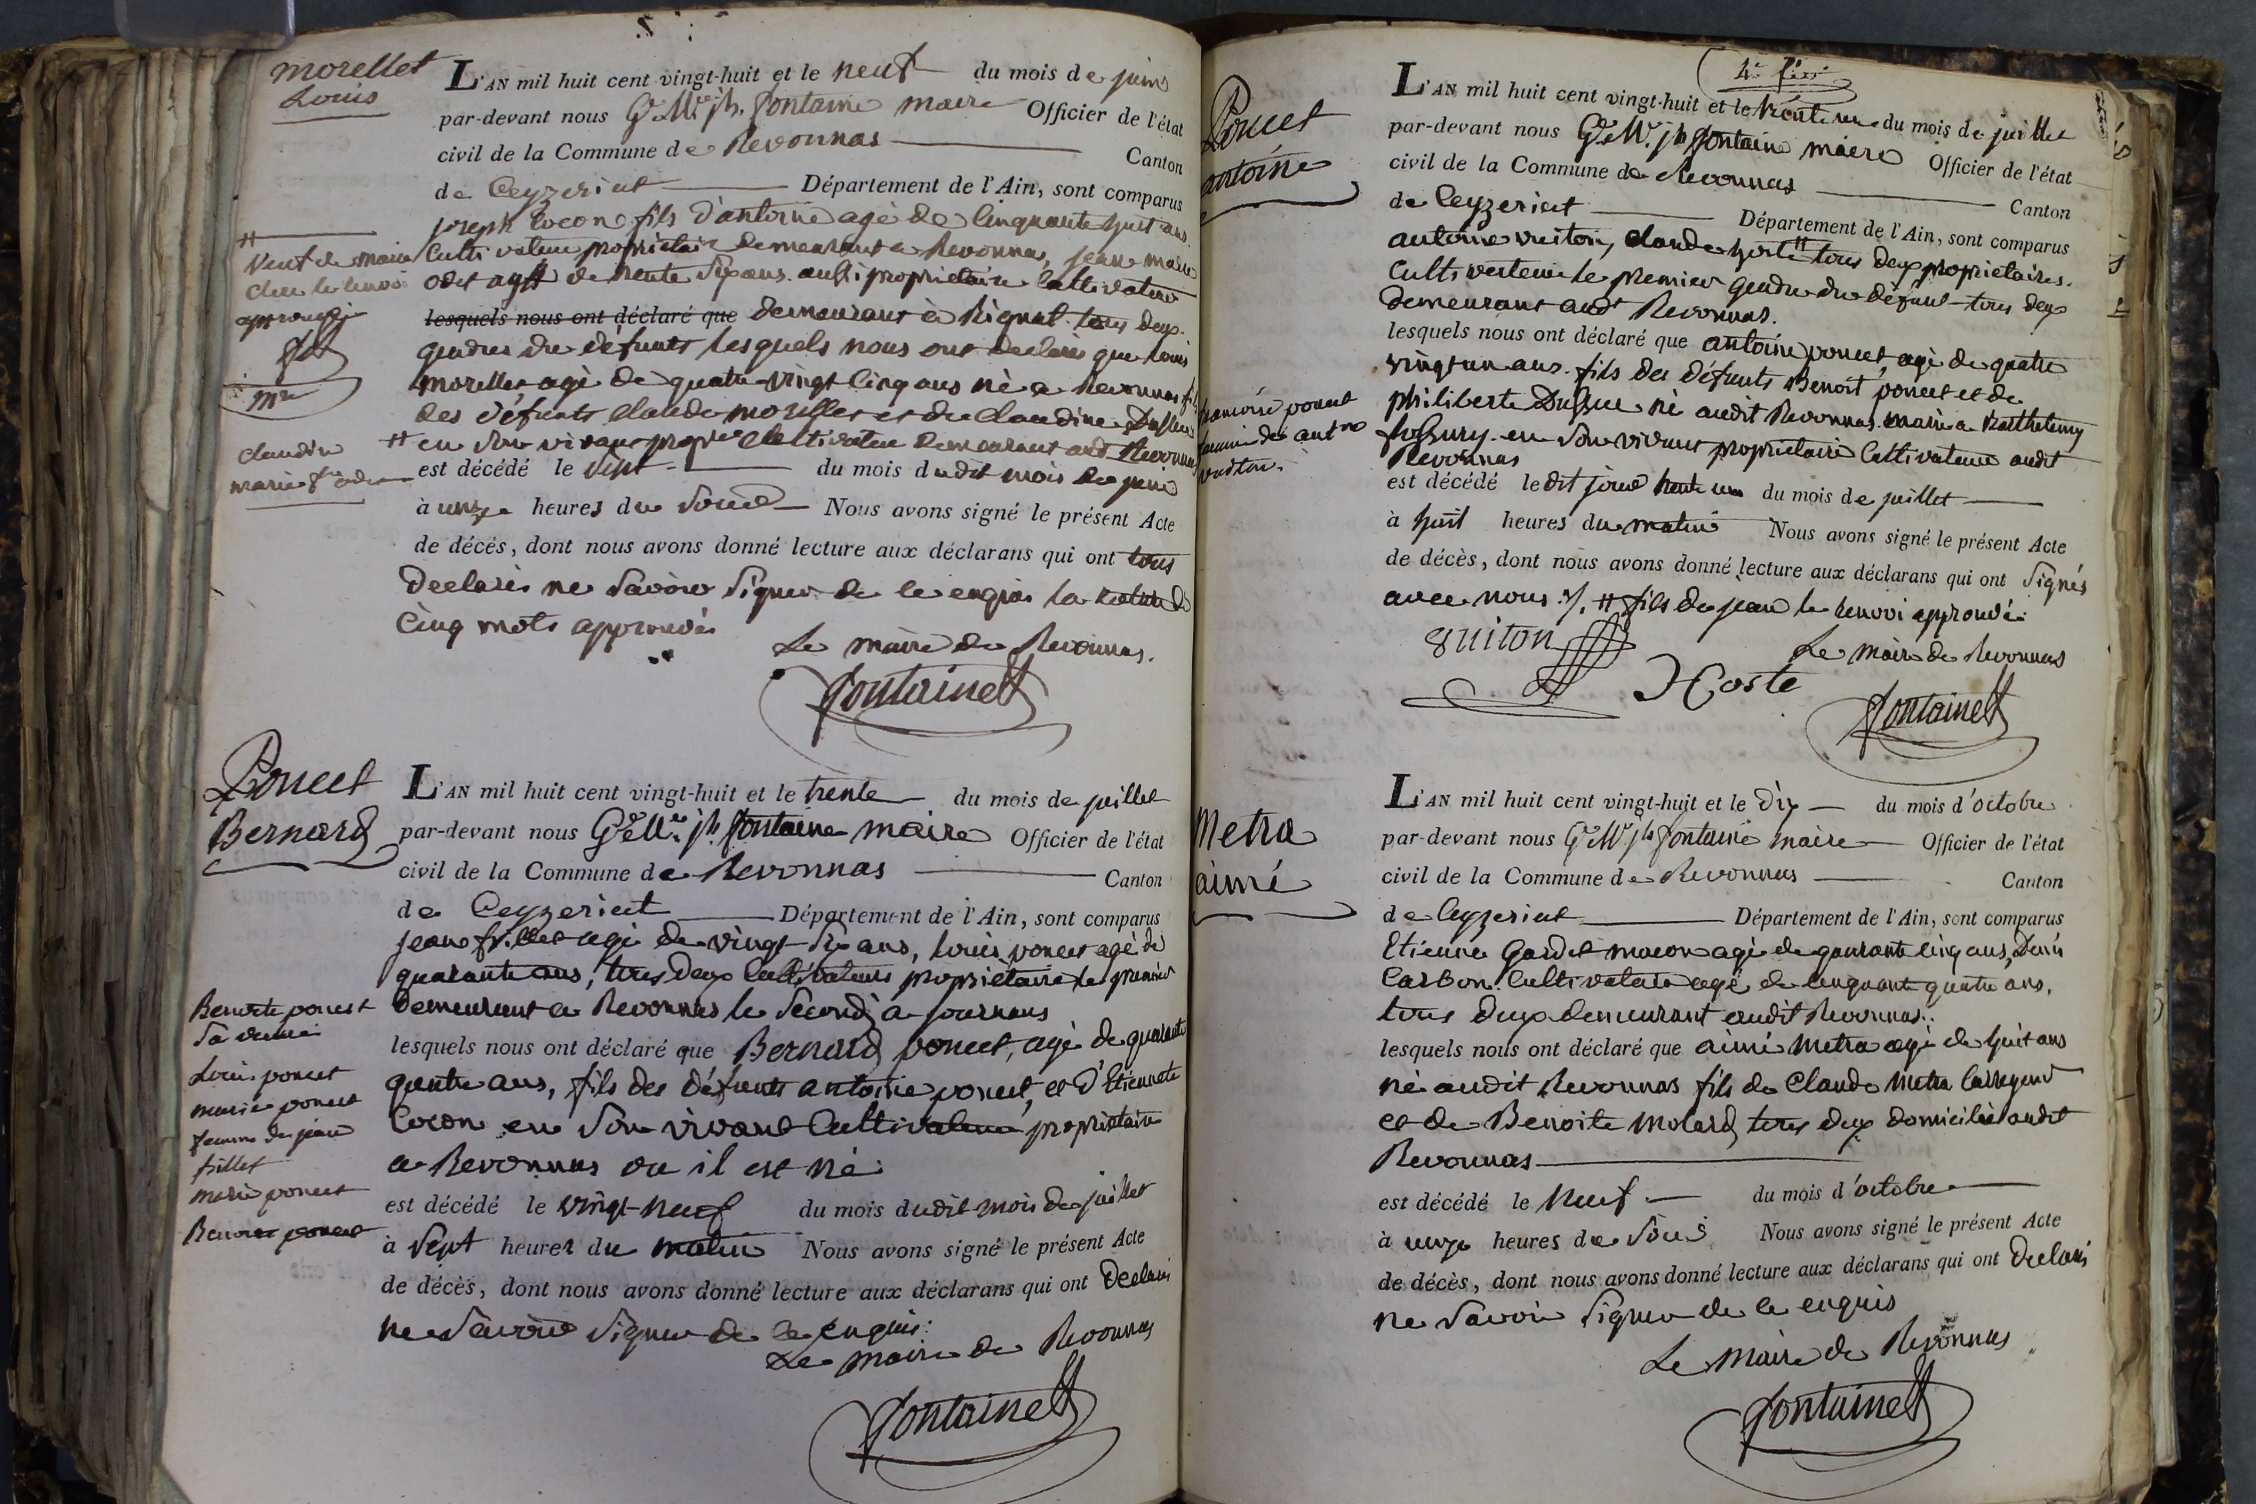 morellet
Louis
L'AN mil huit cent vingt-huit et le neuf du mois de juin
par-devant nous Gme Mie jh. fontaine maire Officier de l'état
civil de la Commune de Revonnas Canton
de Ceyzeriat Département de l'Ain, sont comparus
joseph cocon fils d'antoine agé de cinquante huit ans
Cultivateur propriétaire demeurant a Revonnas, jean marie
odet agé de trente six ans aussi propriétaire Cultivateur
lesquels nous ont déclaré que demeurant à Rignat tous deux
gendres du défunt lesquels nous ont declarés que louis
morellet agé de quatre-vingt cinq ans né a Revonnas fils
des défunts claude morellet et de claudine
en son vivant propre Cultivateur demeurant audt Revonnas
est décédé le sept du mois dudit mois de juin
à unze heures du soir Nous avons signé le présent Acte
de décès, dont nous avons donné lecture aux déclarans qui ont tous
declarés ne savoir signer de ce enquis la rature de
Cinq mots approuvée
Le maire de Revonnas.
fontaine
#
veuf de marie
le renvoi
approuvé
mre
claudine
marie
Poncet
Bernard
L'AN mil huit cent vingt-huit et le trente du mois de juillet
par-devant nous Gme Mie jh fontaine maire Officier de l'état
civil de la Commune de Revonnas Canton
de Ceyzeriat Département de l'Ain, sont comparus
jean frillet agé de vingt six ans, louis poncet agé de
quarante ans, tous deux Cultivateurs propriétaire le premier
demeurant a Revonnas le second à journans
lesquels nous ont déclaré que Bernard poncet, agé de quarante
quatre ans, fils des défunts antoine poncet, et d'Etiennette
Cocon en son vivant Cultivateur propriétaire
a Revonnas ou il est né
est décédé le vingt-neuf du mois dudit mois de juillet
à sept heures du matin Nous avons signé le présent Acte
de décès, dont nous avons donné lecture aux déclarans qui ont declarés
ne savoir signer de ce enquis:
Le maire de Revonnas
fontaine
Benoite poncet
sa
Louis poncet
marie poncet
femme de jean
frillet
marie poncet
Benoit poncet
Poncet
antoine
L'AN mil huit cent vingt-huit et le trente un du mois de juillet
par-devant nous Gme Mie jh fontaine maire Officier de l'état
civil de la Commune de Revonnas Canton
de Ceyzeriat Département de l'Ain, sont comparus
antoine vuiton, claude hoste # tous deux propriétaires
Cultivateur le premier gendre du défunt tous deux
demeurant audt Revonnas.
lesquels nous ont déclaré que antoine poncet, agé de quatre
vingt un ans fils des défunts Benoit poncet et de
philiberte né audit Revonnas marié a Barthelemy
en son vivant propriétaire Cultivateur audit
Revonnas
est décédé le dit jour trente un du mois de juillet
à huit heures du matin Nous avons signé le présent Acte
de décès, dont nous avons donné lecture aux déclarans qui ont signés
avec nous ./. # fils de jean le renvoi approuvé.
vuiton
Hoste
Le maire de Revonnas
fontaine
poncet
femme de antne
vuiton.
Metra
aimé
L'AN mil huit cent vingt-huit et le dix du mois d'octobre
par-devant nous Gme Mie jh fontaine maire Officier de l'état
civil de la Commune de Revonnas Canton
de Ceyzeriat Département de l'Ain, sont comparus
Etienne Gardet macon agé de quarante cinq ans, Denis
Carbon Cultivateur agé de cinquante quatre ans,
tous deux demeurant audit Revonnas.
lesquels nous ont déclaré que aimé metra agé de huit ans
né audit Revonnas fils de Claude metra
et de Benoite molard tous deux domiciliés audit
Revonnas
est décédé le neuf du mois d'octobre
à unze heures de soir Nous avons signé le présent Acte
de décès, dont nous avons donné lecture aux déclarans qui ont declarés
ne savoir signer de ce enquis
Le maire de Revonnas
fontaine